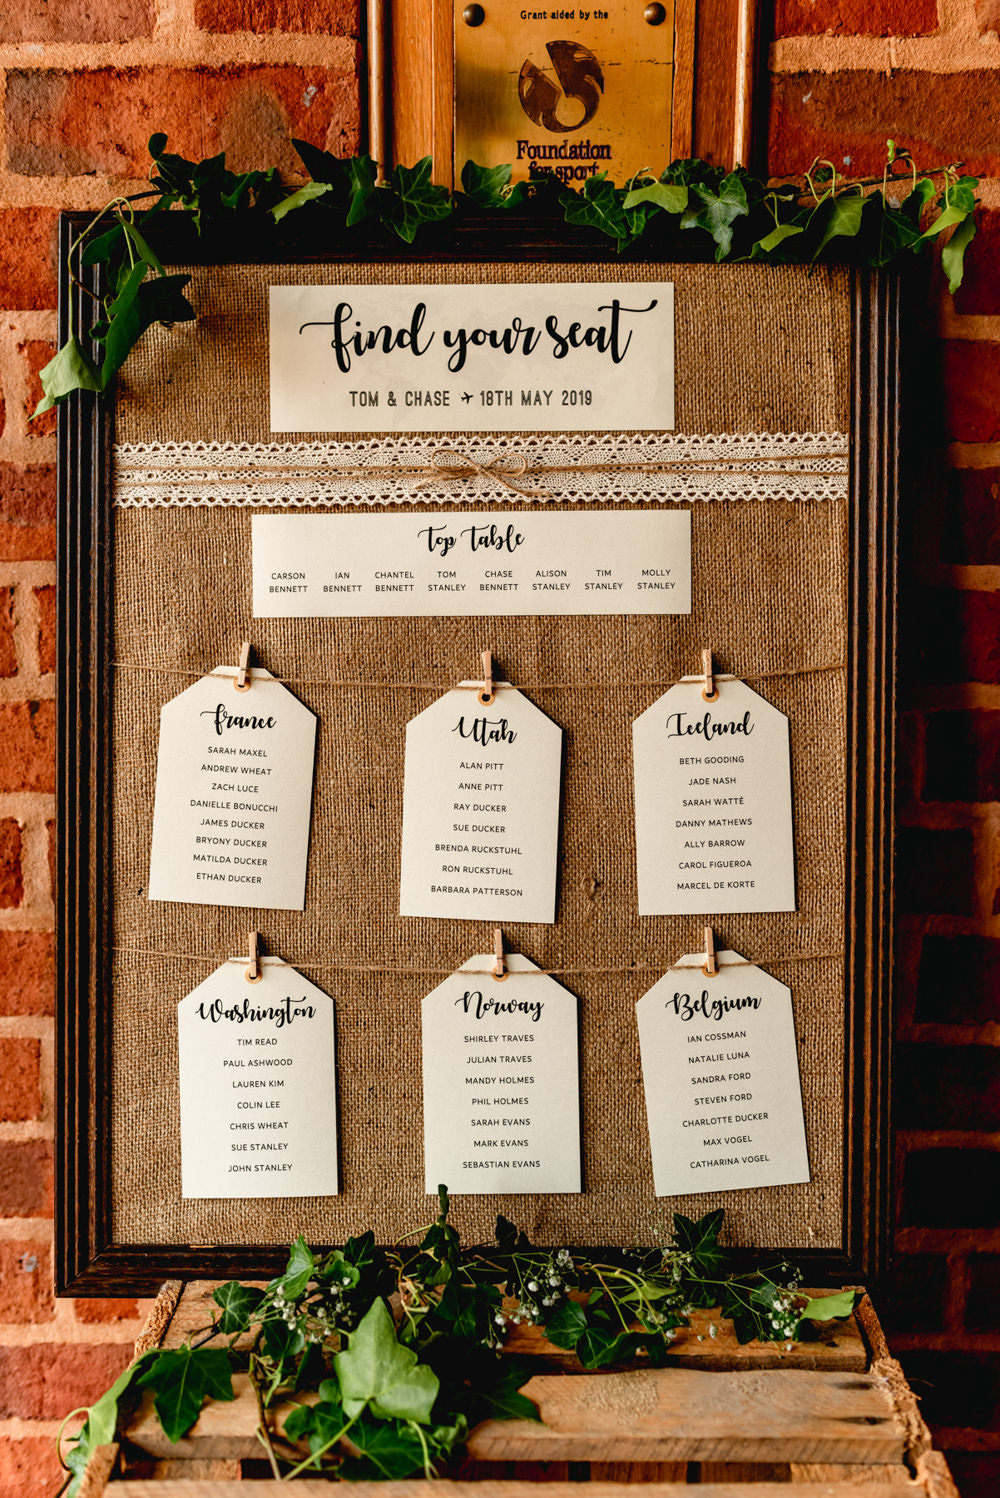 Grant aided by the
Foundation
for sport
find your seat
TOM & CHASE ✈ 18TH MAY 2019
Top Table
CARSON BENNETT
IAN BENNETT
CHANTEL BENNETT
TOM STANLEY
CHASE BENNETT
ALISON STANLEY
TIM STANLEY
MOLLY STANLEY
France
SARAH MAXEL
ANDREW WHEAT
ZACH LUCE
DANIELLE BONUCCHI
JAMES DUCKER
BRYONY DUCKER
MATILDA DUCKER
ETHAN DUCKER
Utah
ALAN PITT
ANNE PITT
RAY DUCKER
SUE DUCKER
BRENDA RUCKSTUHL
RON RUCKSTUHL
BARBARA PATTERSON
Iceland
BETH GOODING
JADE NASH
SARAH WATTÉ
DANNY MATHEWS
ALLY BARROW
CAROL FIGUEROA
MARCEL DE KORTE
Washington
TIM READ
PAUL ASHWOOD
LAUREN KIM
COLIN LEE
CHRIS WHEAT
SUE STANLEY
JOHN STANLEY
Norway
SHIRLEY TRAVES
JULIAN TRAVES
MANDY HOLMES
PHIL HOLMES
SARAH EVANS
MARK EVANS
SEBASTIAN EVANS
Belgium
IAN COSSMAN
NATALIE LUNA
SANDRA FORD
STEVEN FORD
CHARLOTTE DUCKER
MAX VOGEL
CATHARINA VOGEL